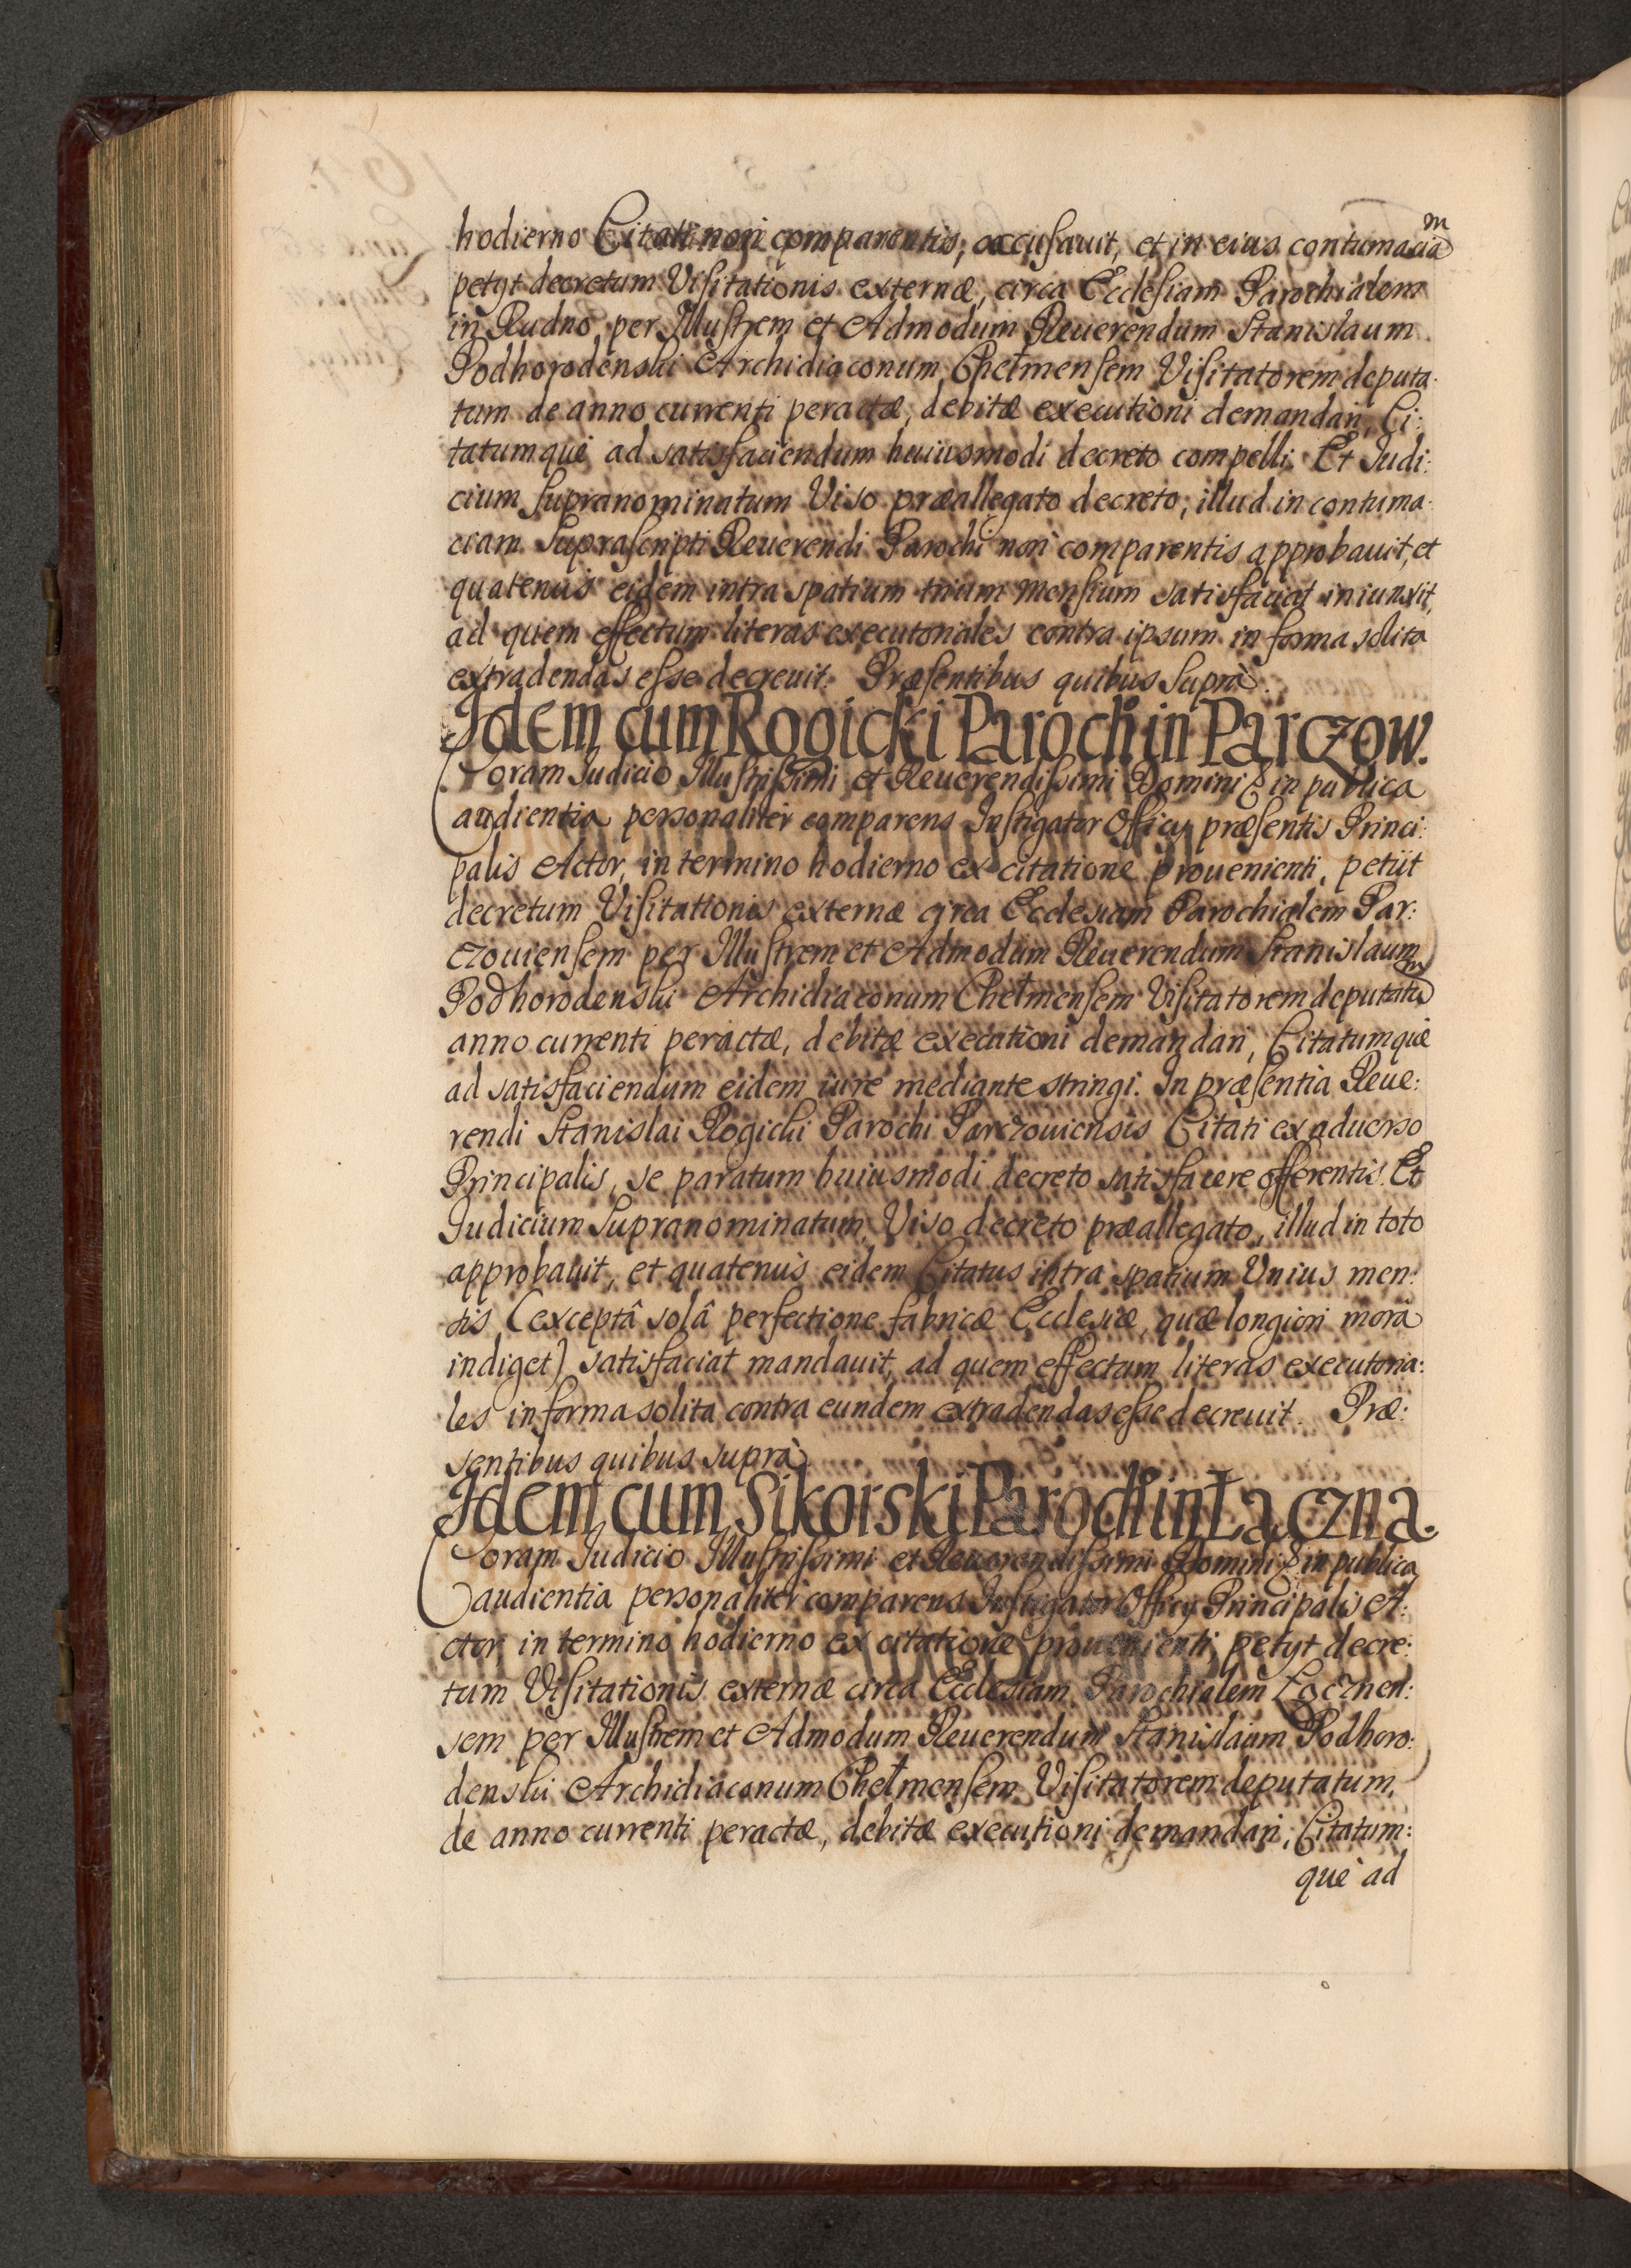 hodierno Citati non comparentis, accusauit, et in eius contumacia<sup>m</sup>
petyt decretum Visitationis externæ, circa Ecclesiam Parochialem
in Rudno, per Illustrem et Admodum Reuerendum Stanislaum
Podhorodenski Archidiaconum Chełmensem Visitatorem deputa:
tum de anno currenti peractæ, debitæ executioni demandari, Ci:
tatumque ad satisfaciendum huiusmodi decreto compelli. Et Judi:
cium supranominatum Viso præallegato decreto, illud in contuma:
ciam suprascripti Reuerendi Parochi non comparentis approbauit, et
quatenus eidem intra spatium trium mensium satisfaciat iniunxit,
ad quem effectum literas executoriales contra ipsum in forma solita
extradendas esse decreuit. Præsentibus quibus Suprà.
Idem cum Rogicki Paroch in Parczow.
Coram Iudicio Illustrissimi et Reuerendissimi Domini & in publica
audientia personaliter comparens Instigator Officy præsentis Princi:
palis Actor, in termino hodierno ex citatione prouenienti, petiit
decretum Visitationis externæ circa Ecclesiam Parochialem Par:
czouiensem per Illustrem et Admodum Reuerendum Stanislaum
Podhorodenski Archidiaconum Chełmensem Visitatorem deputatu<sup>m</sup>
anno currenti peractæ, debitæ executioni demandari, Citatumque
ad satisfaciendum eidem iure mediante stringi. In præsentia Reue:
rendi Stanislai Rogicki Parochi Parczouiensis Citati ex aduerso
Principalis, se paratum huiusmodi decreto satisfacere offerentis. Et
Iudicium Supranominatum, Viso decreto præallegato, illud in toto
approbauit, et quatenùs eidem Citatus intra spatium Vnius men:
sis (exceptâ solâ perfectione fabricæ Ecclesiæ, quæ longiori mora
indiget) satisfaciat mandauit, ad quem effectum literas executoria:
les in forma solita contra eundem extradendas esse decreuit. Præ:
sentibus quibus suprà
Idem cum Sikorski Paroch in Łączna.
Coram Iudicio Illustrissimi et Reuerendissimi Domini & in publica
audientia personaliter comparens Instigator Officy Principalis A:
ctor, in termino hodierno ex citatione prouenienti, petyt decre:
tum Visitationis externæ circa Ecclesiam Parochialem Łącznen:
sem per Illustrem et Admodum Reuerendum Stanislaum Podhoro:
denski Archidiaconum Chełmensem Visitatorem deputatum,
de anno currenti peractæ, debitæ executioni demandari, Citatum:
què ad